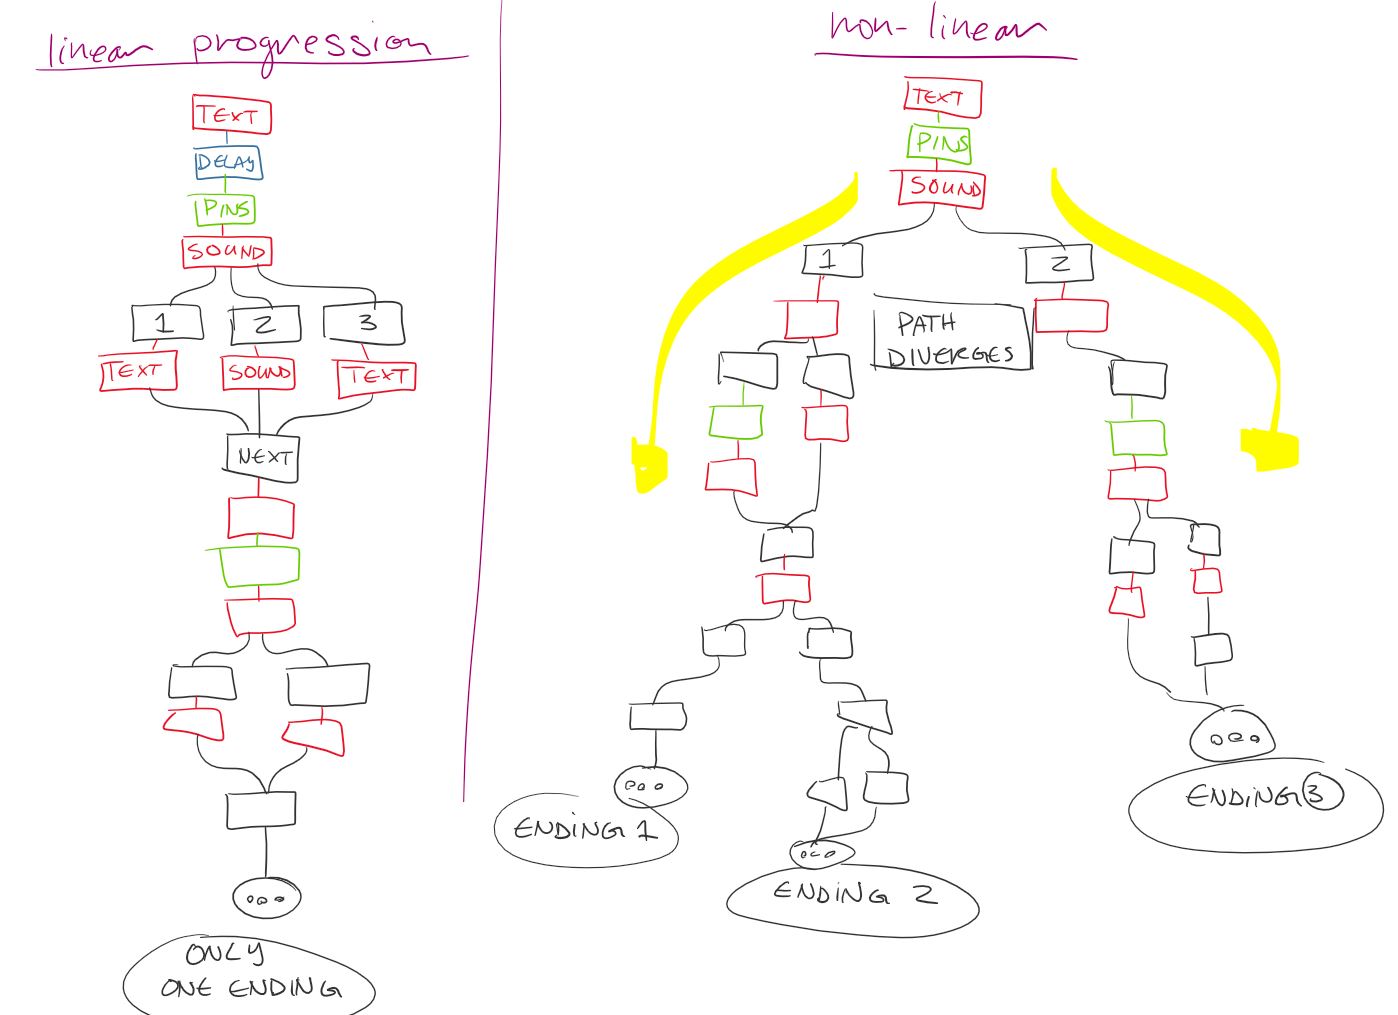 linear progression
TEXT
DELAY
PINS
SOUND
1 2 3
TEXT SOUND TEXT
NEXT
ONLY
ONE ENDING
non-linear
TEXT
PINS
SOUND
1 2
PATH
DIVERGES
ENDING 1
ENDING 2
ENDING 3